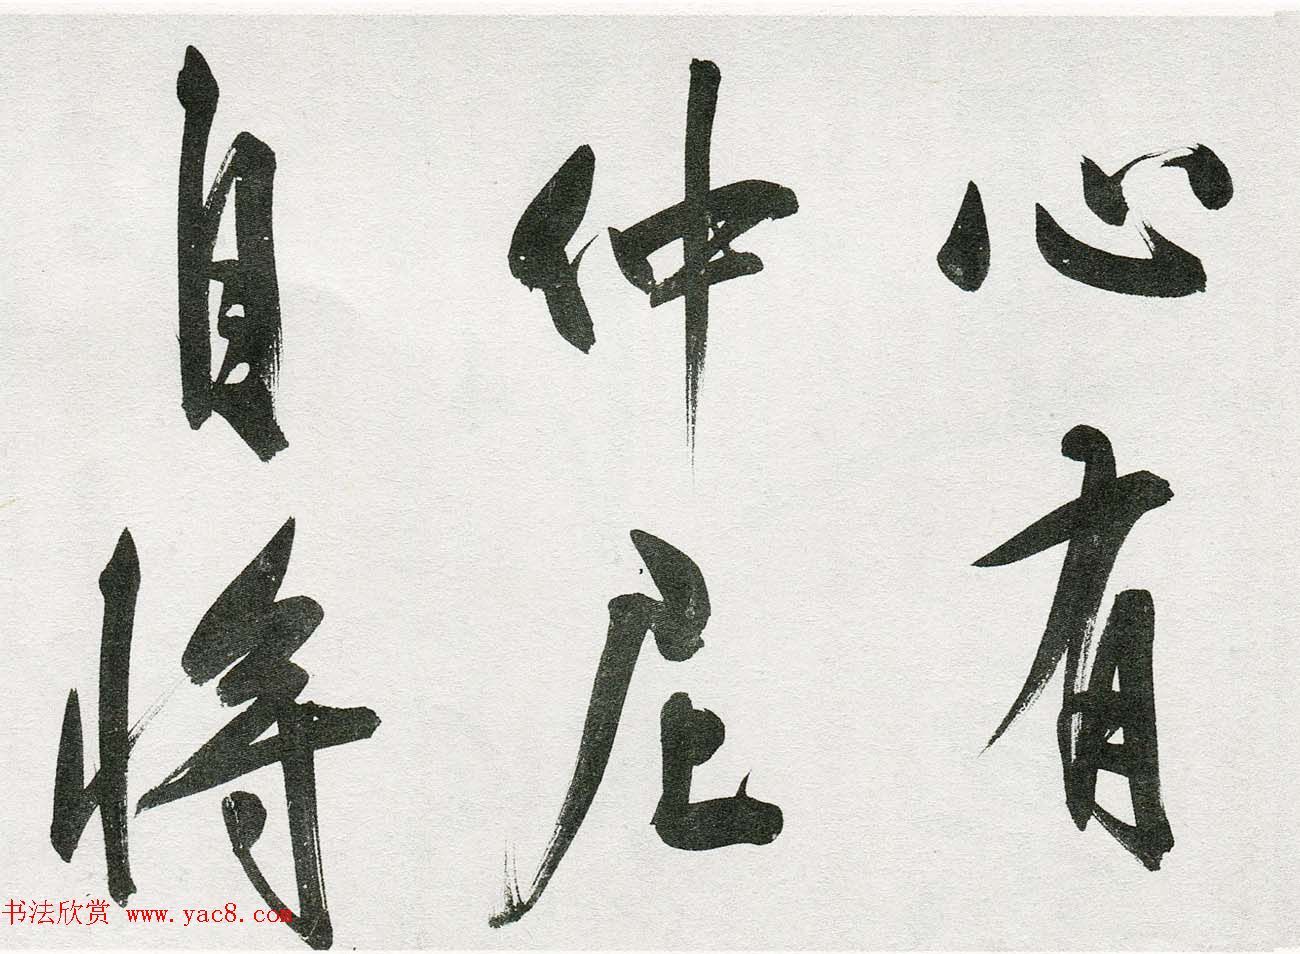 心有
仲尼
自将
书法欣赏 www.yac8.com